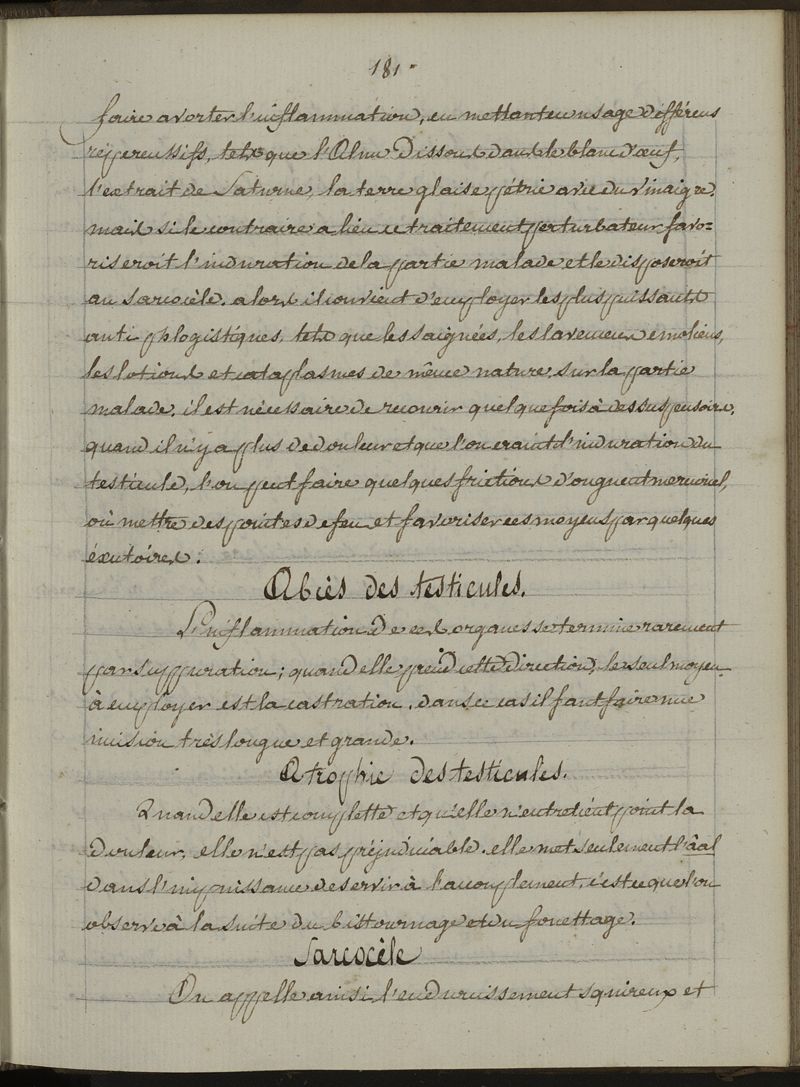 181.
faire avorter l'inflammation, en mettant en usage différens
repercussifs, tels que l'Alun Dissout dans le blanc d'œuf,
l'extrait de Saturne, la terre glaise pétrie avec du vinaigre.
mais si le contraire a lieu ce traitement perturbateur favo=
riseroit l'induration de la partie malade et le disposeroit
au Sarcocèle. alors il convient d'employer les plus puissants
anti-phlogistiques, tels que les saignées, les lavemens émoliens,
les lotions et cataplasmes de même nature, sur la partie
malade. il est nécessaire de recourir quelque fois à des suspensoire,
quand il n'y a plus de douleur et que l'on craint l'induration du
testicule, l'on peut faire quelques frictions d'onguent mercuriel,
où mettre des pointes de feu et favoriser ces moyens par quelques
éxutoires.
Abcès des testicules.
L'inflammation de ces organes se termine rarement
par suppuration; quand elle prend cette direction, le seul moyen
à employer est la castration. dans ce cas il faut faire une
incision très longue et grande.
Atrophie des testicules.
Quand elle est complette et qu'elle n'entretient point la
douleur, elle n'est pas préjudiciable. elle met seulement l'âal
dans l'impuissance de servir à l'accouplement. c'est ce que l'on
observe à la suite du bistournage et du fouettage.
Sarcocèle
On appelle ainsi l'endurcissement squireux et